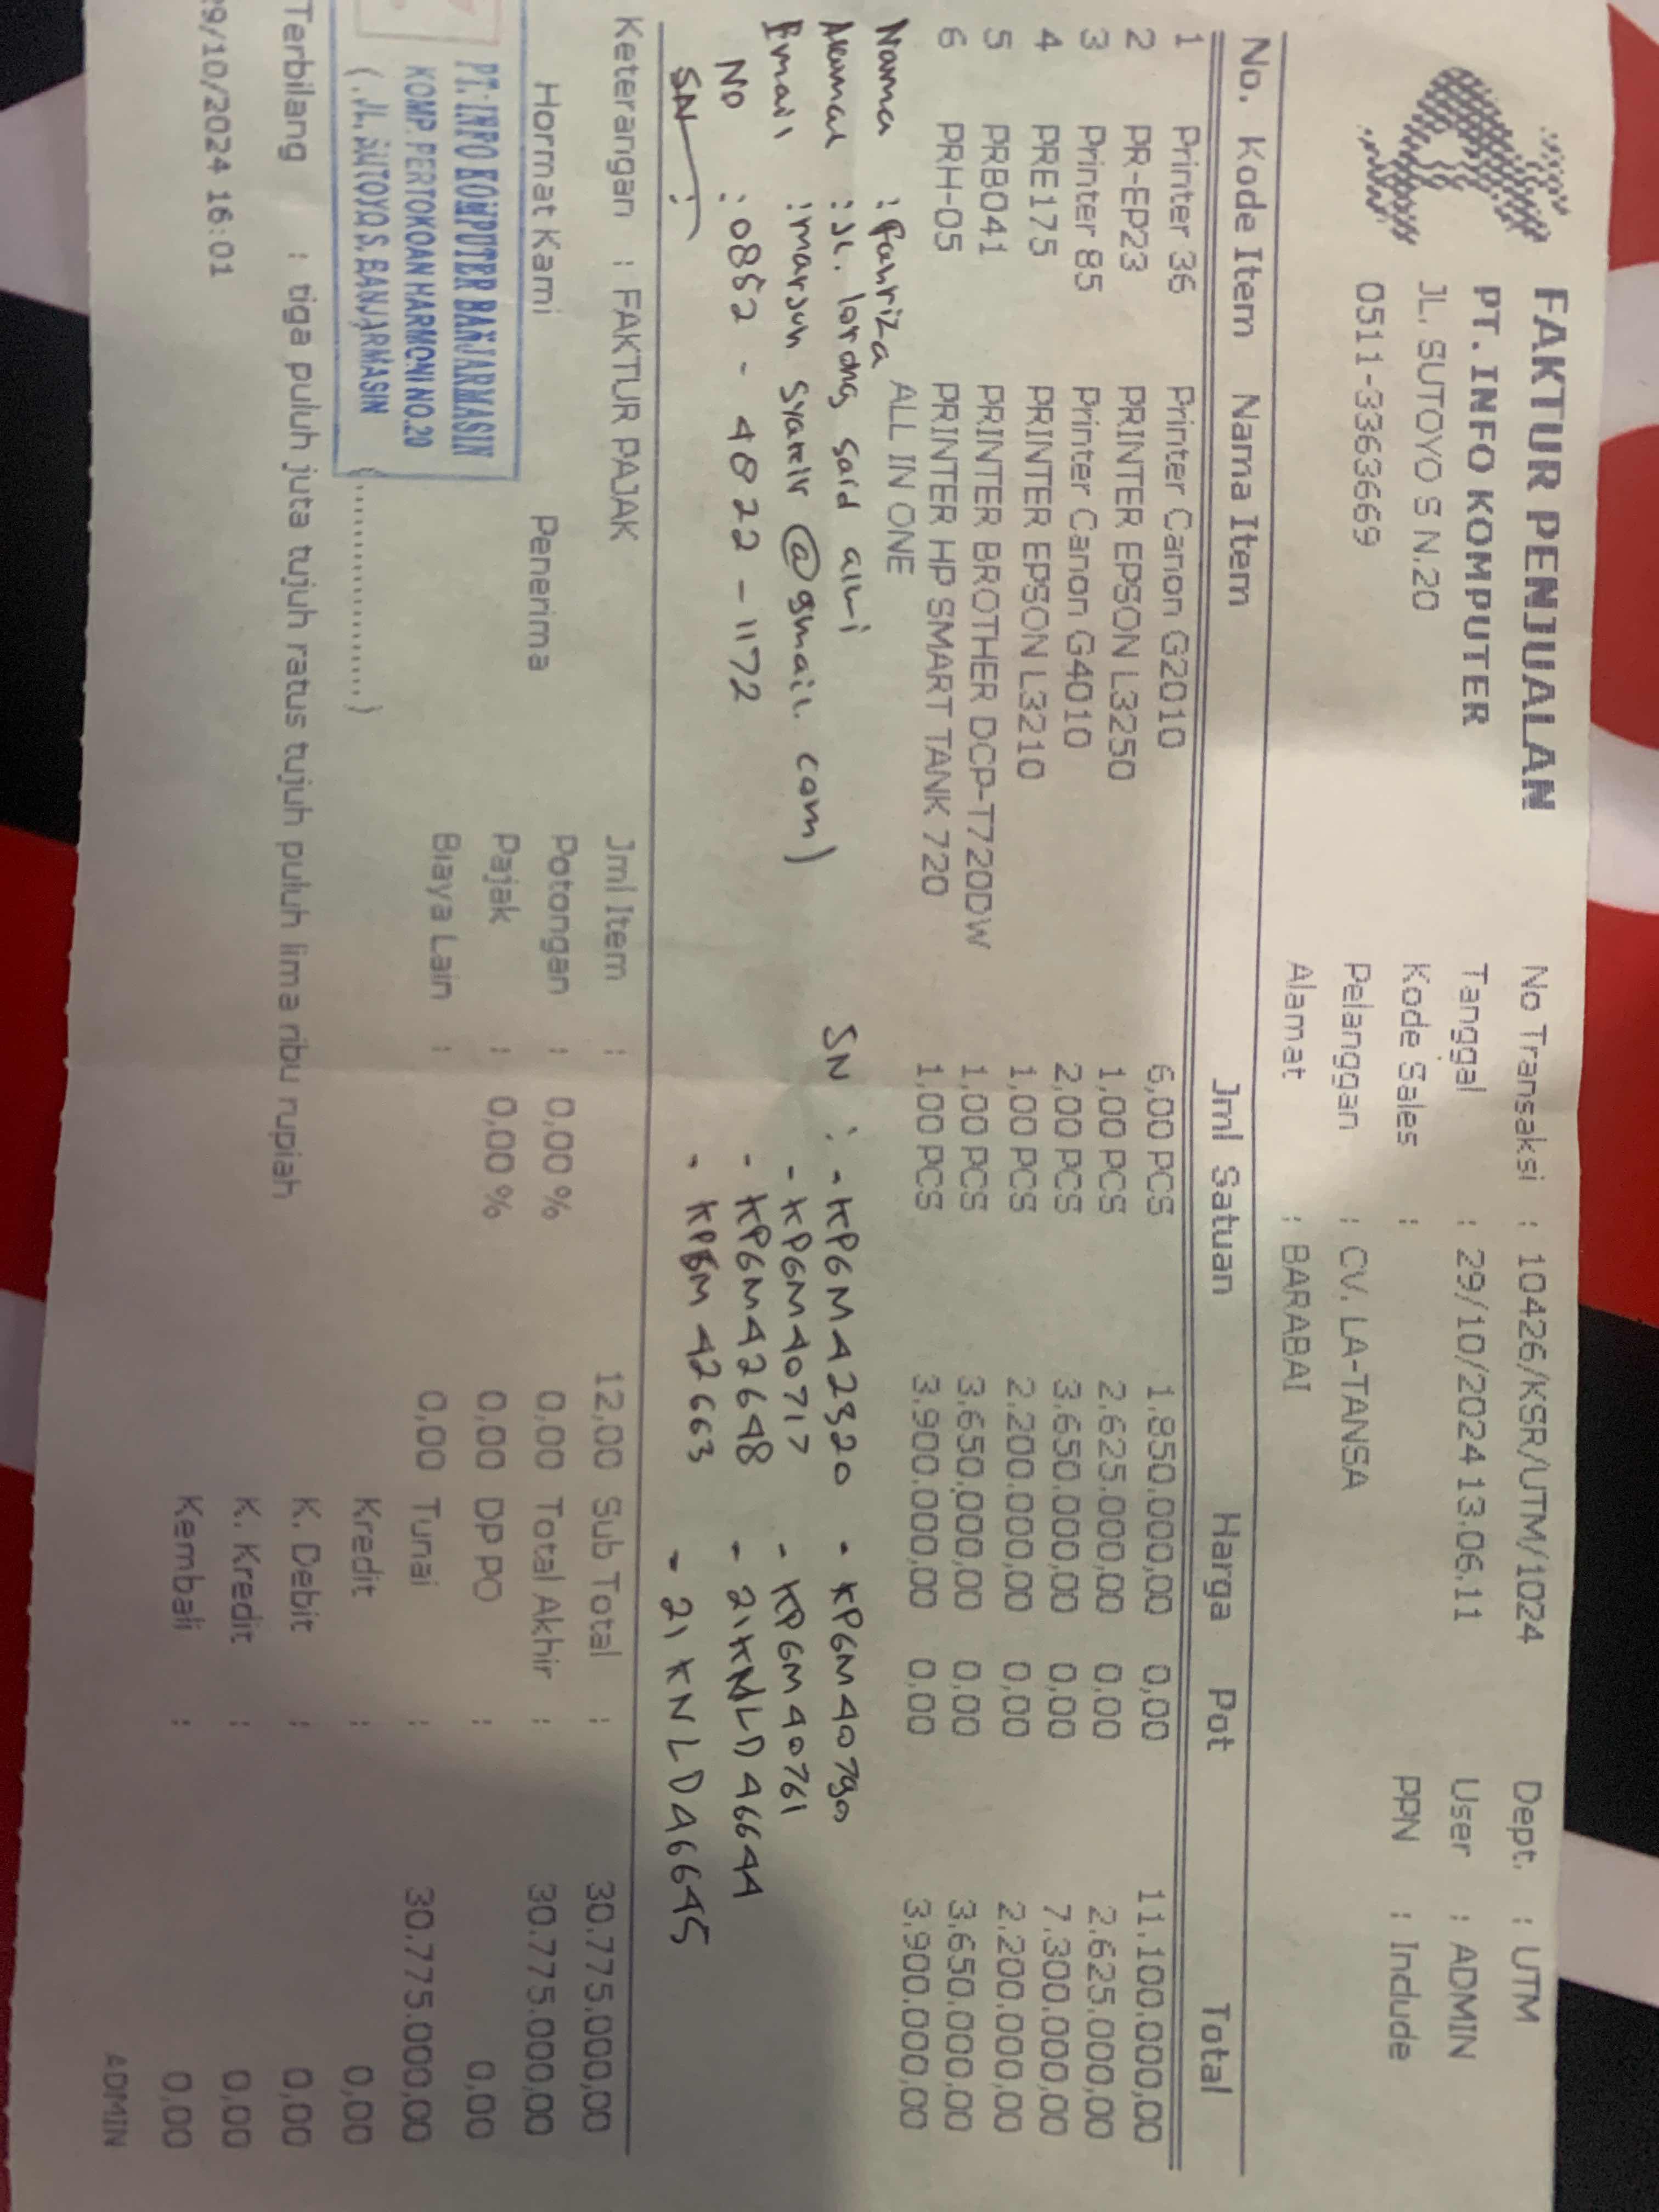 FAKTUR PENJUALAN
PT. INFO KOMPUTER
JL. SUTOYO S N.20
0511-3363669
No Transaksi : 10426/KSR/UTM/1024
Tanggal : 29/10/2024 13.06.11
Kode Sales :
Pelanggan : CV. LA-TANSA
Alamat : BARABAI
Dept. : UTM
User : ADMIN
PPN : Include
No. Kode Item Nama Item Jml Satuan Harga Pot Total
1 Printer 36 Printer Canon G2010 6,00 PCS 1.850.000,00 0,00 11.100.000,00
2 PR-EP23 PRINTER EPSON L3250 1,00 PCS 2.625.000,00 0,00 2.625.000,00
3 Printer 85 Printer Canon G4010 2,00 PCS 3.650.000,00 0,00 7.300.000,00
4 PRE175 PRINTER EPSON L3210 1,00 PCS 2.200.000,00 0,00 2.200.000,00
5 PRB041 PRINTER BROTHER DCP-T720DW 1,00 PCS 3.650.000,00 0,00 3.650.000,00
6 PRH-05 PRINTER HP SMART TANK 720 1,00 PCS 3.900.000,00 0,00 3.900.000,00
ALL IN ONE
Nama : Fahriza
Alamat : JL. lorong said alwi
Email : marsun @gmail.com)
NO : 0852-4822-1172
SN :
SN : - KPGMA2320 - KPGM40790
- KPGM40717 - KPGM40761
- KPGM42648 - 21KNLD46644
- KPGM42663 - 21KNLD46645
Keterangan : FAKTUR PAJAK
Hormat Kami Penerima
PT. INFO KOMPUTER BANJARMASIN
KOMP. PERTOKOAN HARMONI NO.20
( JL. SUTOYO S. BANJARMASIN (..................)
Jml Item : 12,00
Potongan : 0,00 % 0,00
Pajak : 0,00 % 0,00
Biaya Lain : 0,00
Sub Total : 30.775.000,00
Total Akhir : 30.775.000,00
DP PO : 0,00
Tunai : 30.775.000,00
Kredit : 0,00
K. Debit : 0,00
K. Kredit : 0,00
Kembali : 0,00
Terbilang : tiga puluh juta tujuh ratus tujuh puluh lima ribu rupiah
9/10/2024 16:01
ADMIN